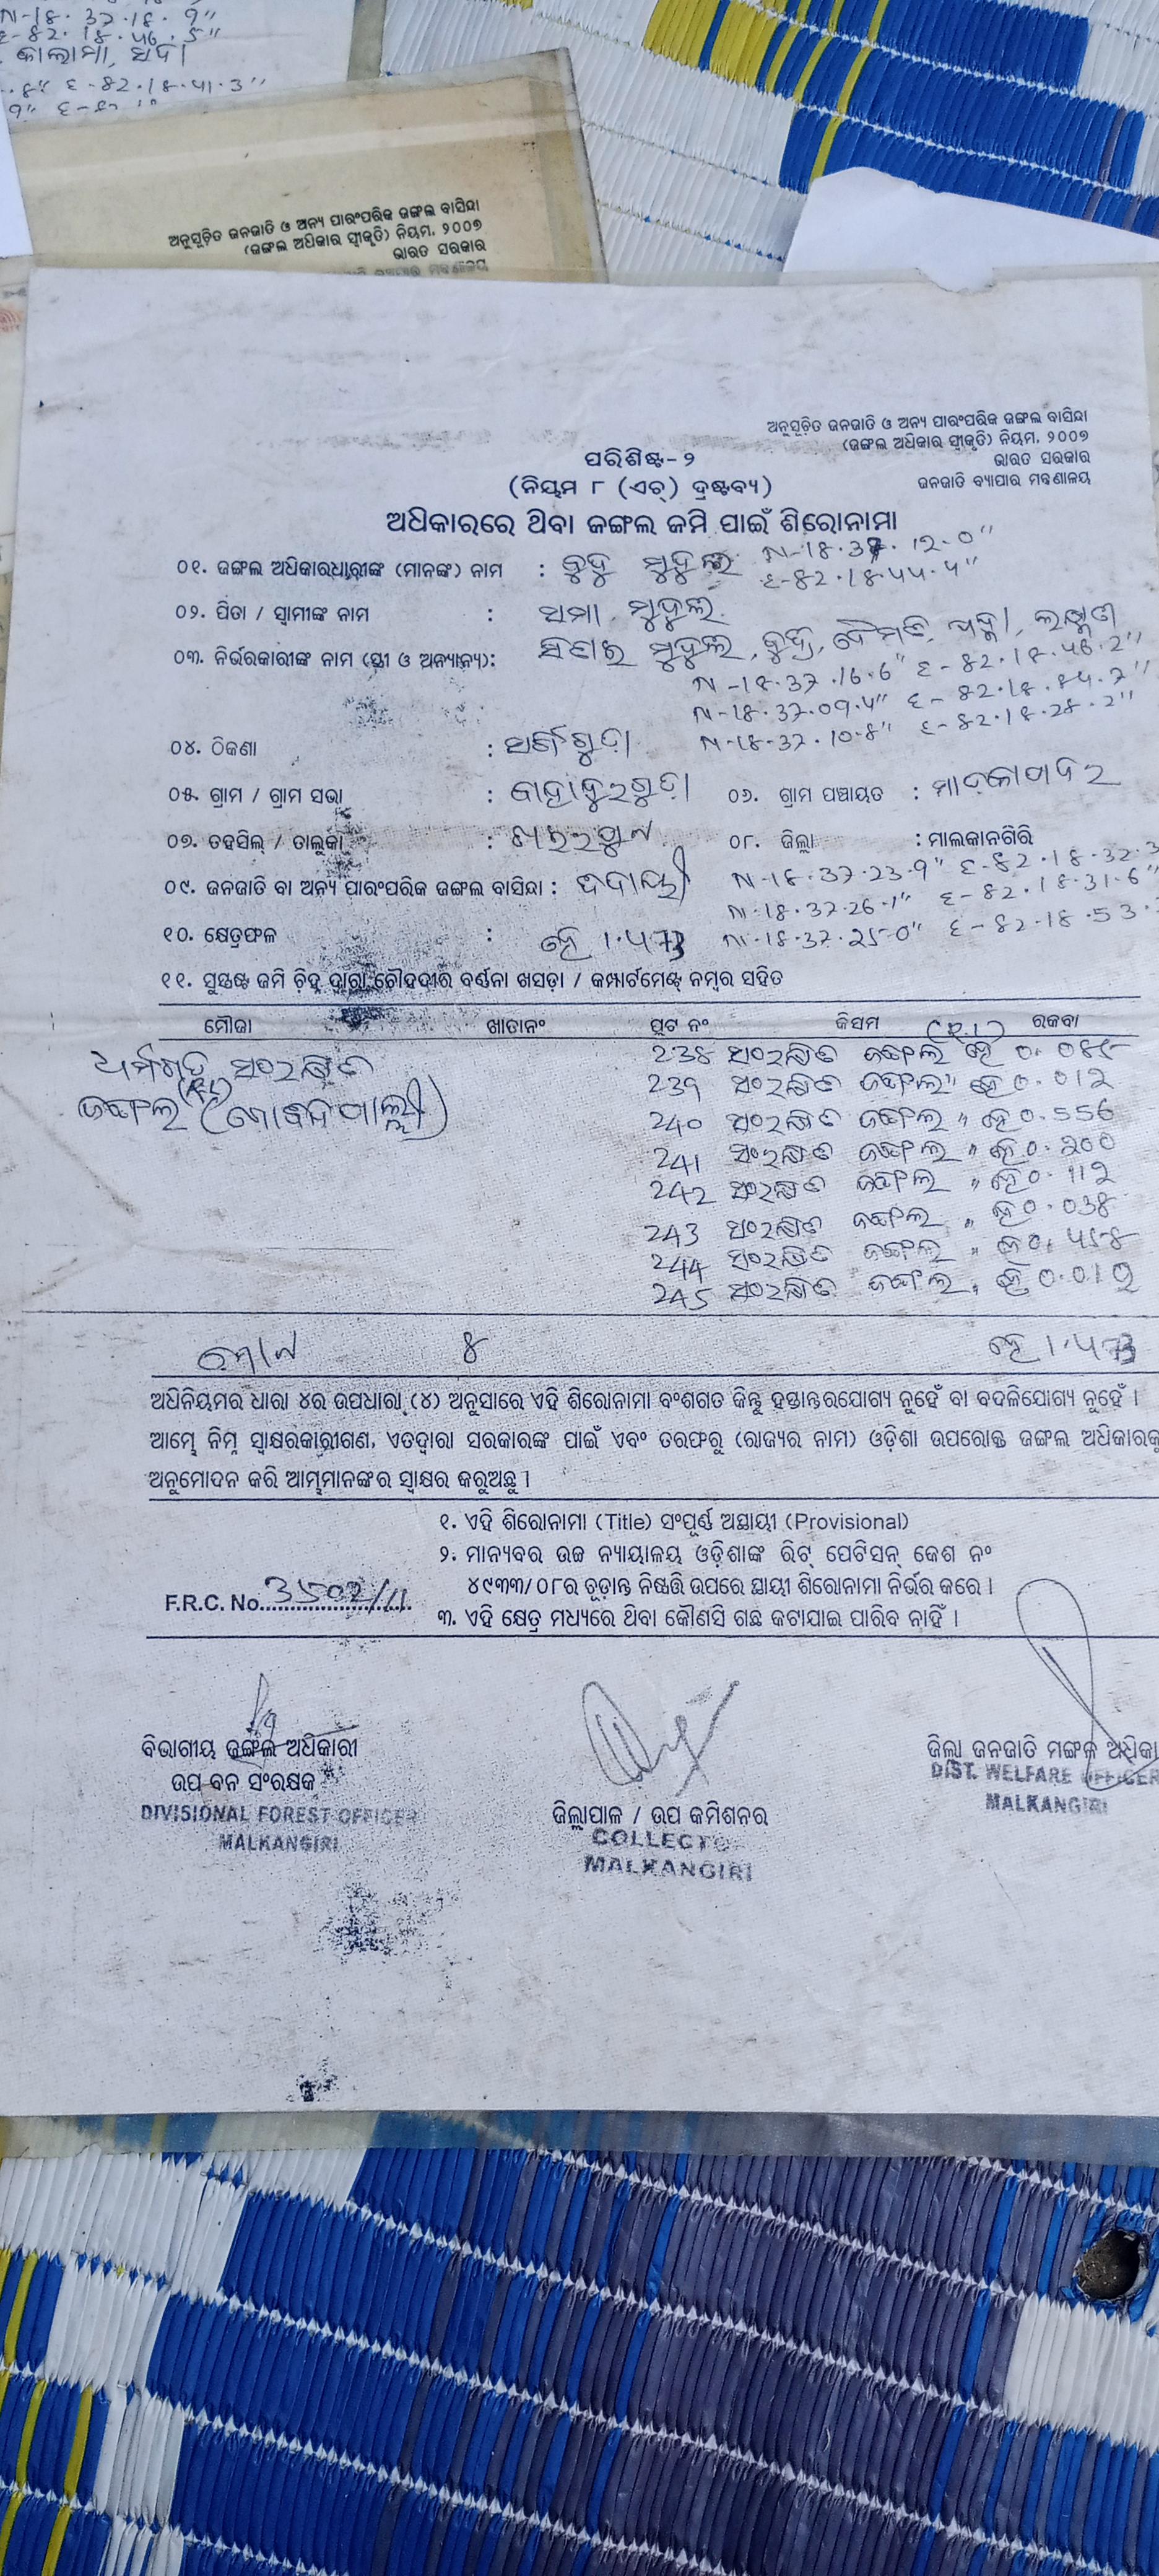 N-18.37.18.9"
E-82.18.46.5"
E-82.18.41.3"
ଅନୁସୂଚିତ ଜନଜାତି ଓ ଅନ୍ୟ ପାରଂପରିକ ଜଙ୍ଗଲ ବାସିନ୍ଦା
(ଜଙ୍ଗଲ ଅଧିକାର ସ୍ୱୀକୃତି) ନିୟମ, ୨୦୦୭
ଭାରତ ସରକାର
ଅନୁସୂଚିତ ଜନଜାତି ଓ ଅନ୍ୟ ପାରଂପରିକ ଜଙ୍ଗଲ ବାସିନ୍ଦା
(ଜଙ୍ଗଲ ଅଧିକାର ସ୍ୱୀକୃତି) ନିୟମ, ୨୦୦୭
ଭାରତ ସରକାର
ଜନଜାତି ବ୍ୟାପାର ମନ୍ତ୍ରଣାଳୟ
ପରିଶିଷ୍ଟ-୨
(ନିୟମ ୮ (ଏଚ୍) ଦ୍ରଷ୍ଟବ୍ୟ)
ଅଧିକାରରେ ଥିବା ଜଙ୍ଗଲ ଜମି ପାଇଁ ଶିରୋନାମା
୦୧. ଜଙ୍ଗଲ ଅଧିକାରଧାରୀଙ୍କ (ମାନଙ୍କ) ନାମ : ବୁଦୁ ମୁଦୁଲି N-18.37.12.0"
E-82.18.44.4"
୦୨. ପିତା / ସ୍ୱାମୀଙ୍କ ନାମ : ସମା ମୁଦୁଲି
୦୩. ନିର୍ଭରକାରୀଙ୍କ ନାମ (ସ୍ତ୍ରୀ ଓ ଅନ୍ୟାନ୍ୟ): ମୁଦୁଲି,
N-18.37.16.6" E-82.18.46.2"
N-18.37.09.4" E-82.18.84.7"
N-18.37.10.8" E-82.18.28.2"
୦୪. ଠିକଣା :
୦୫. ଗ୍ରାମ / ଗ୍ରାମ ସଭା : ବାହାଦୁରଗୁଡ଼ା ୦୬. ଗ୍ରାମ ପଞ୍ଚାୟତ : ମାଦକାପଦର
୦୭. ତହସିଲ୍ / ତାଲୁକା : ଖଇରପୁଟ ୦୮. ଜିଲ୍ଲା : ମାଲକାନଗିରି
୦୯. ଜନଜାତି ବା ଅନ୍ୟ ପାରଂପରିକ ଜଙ୍ଗଲ ବାସିନ୍ଦା : N-18.37.23.9" E-82.18.32.3
N-18.37.26.1" E-82.18.31.6"
୧୦. କ୍ଷେତ୍ରଫଳ : ହେ 1.473 N-18.37.25.0" E-82.18.53.
୧୧. ସୁସ୍ପଷ୍ଟ ଜମି ଚିହ୍ନ ଦ୍ୱାରା ଚୌହଦୀର ବର୍ଣନା ଖସଡ଼ା / କମ୍ପାର୍ଟମେଣ୍ଟ୍ ନମ୍ବର ସହିତ
ମୌଜା ଖାତାନଂ ପ୍ଲଟ ନଂ କିସମ ରକବା
ସଂରକ୍ଷିତ
ଜଙ୍ଗଲ (ଗୋବିନ୍ଦପାଲ୍ଲୀ)
238 ସଂରକ୍ଷିତ ଜଙ୍ଗଲ ହେ 0.085
239 ସଂରକ୍ଷିତ ଜଙ୍ଗଲ " ହେ 0.012
240 ସଂରକ୍ଷିତ ଜଙ୍ଗଲ " ହେ 0.556
241 ସଂରକ୍ଷିତ ଜଙ୍ଗଲ " ହେ 0.200
242 ସଂରକ୍ଷିତ ଜଙ୍ଗଲ " ହେ 0.112
243 ସଂରକ୍ଷିତ ଜଙ୍ଗଲ " ହେ 0.038
244 ସଂରକ୍ଷିତ ଜଙ୍ଗଲ " ହେ 0.458
245 ସଂରକ୍ଷିତ ଜଙ୍ଗଲ " ହେ 0.012
ମୋଟ ୫ ହେ 1.473
ଅଧିନିୟମର ଧାରା ୪ର ଉପଧାରା (୪) ଅନୁସାରେ ଏହି ଶିରୋନାମା ବଂଶଗତ କିନ୍ତୁ ହସ୍ତାନ୍ତରଯୋଗ୍ୟ ନୁହେଁ ବା ବଦଳିଯୋଗ୍ୟ ନୁହେଁ ।
ଆମ୍ଭେ ନିମ୍ନ ସ୍ୱାକ୍ଷରକାରୀଗଣ, ଏତଦ୍ୱାରା ସରକାରଙ୍କ ପାଇଁ ଏବଂ ତରଫରୁ (ରାଜ୍ୟର ନାମ) ଓଡ଼ିଶା ଉପରୋକ୍ତ ଜଙ୍ଗଲ ଅଧିକାରକୁ
ଅନୁମୋଦନ କରି ଆମ୍ଭମାନଙ୍କର ସ୍ୱାକ୍ଷର କରୁଅଛୁ ।
୧. ଏହି ଶିରୋନାମା (Title) ସଂପୂର୍ଣ୍ଣ ଅସ୍ଥାୟୀ (Provisional)
୨. ମାନ୍ୟବର ଉଚ୍ଚ ନ୍ୟାୟାଳୟ ଓଡ଼ିଶାଙ୍କ ରିଟ୍ ପେଟିସନ୍ କେଶ ନଂ
୪୯୩୩/୦୮ର ଚୂଡ଼ାନ୍ତ ନିଷ୍ପତ୍ତି ଉପରେ ସ୍ଥାୟୀ ଶିରୋନାମା ନିର୍ଭର କରେ ।
F.R.C. No. 3502/11
୩. ଏହି କ୍ଷେତ୍ର ମଧ୍ୟରେ ଥିବା କୌଣସି ଗଛ କଟାଯାଇ ପାରିବ ନାହିଁ ।
ବିଭାଗୀୟ ଜଙ୍ଗଲ ଅଧିକାରୀ
ଉପ ବନ ସଂରକ୍ଷକ
DIVISIONAL FOREST OFFICER
MALKANGIRI
ଜିଲ୍ଲାପାଳ / ଉପ କମିଶନର
COLLECTO
MALKANGIRI
ଜିଲ୍ଲା ଜନଜାତି ମଙ୍ଗଳ ଅଧିକା
DIST. WELFARE OFFICER
MALKANGIRI